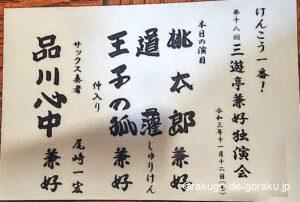 けんこう一番!
第十八回 三遊亭兼好独演会
令和三年十一月十二日㊎
本日の演目
桃太郎 兼好
道灌 しゅりけん
王子の狐 兼好
仲入り
サックス奏者 尾崎一宏
品川心中 兼好
©rakugo-de-goraku.jp